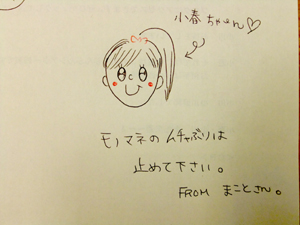 小春ちゃん♡
モノマネのムチャぶりは
止めて下さい。
FROM まことさん。